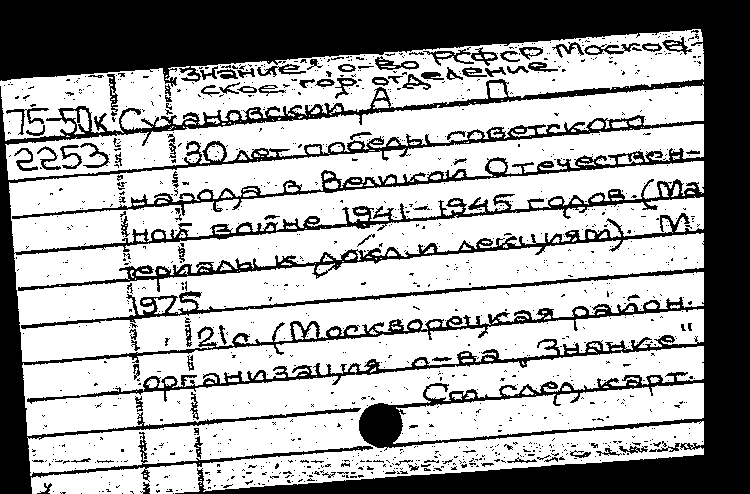 "Знание", о-во РСФСР Москов-
ское гор. отделение.
75-50к Сухановский, А П
2253 30 лет победы советского
народа в Великой Отечествен-
ной войне 1941-1945 годов. (Ма
териалы к докл. и лекциям). М.
1975.
21с. (Москворецкая район.
организация о-ва "Знание"
См. след. карт.